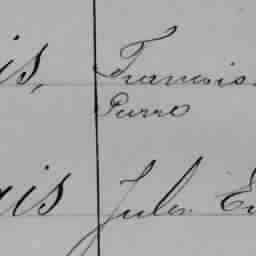 is, Francois
Pierre
ais Jules Eu